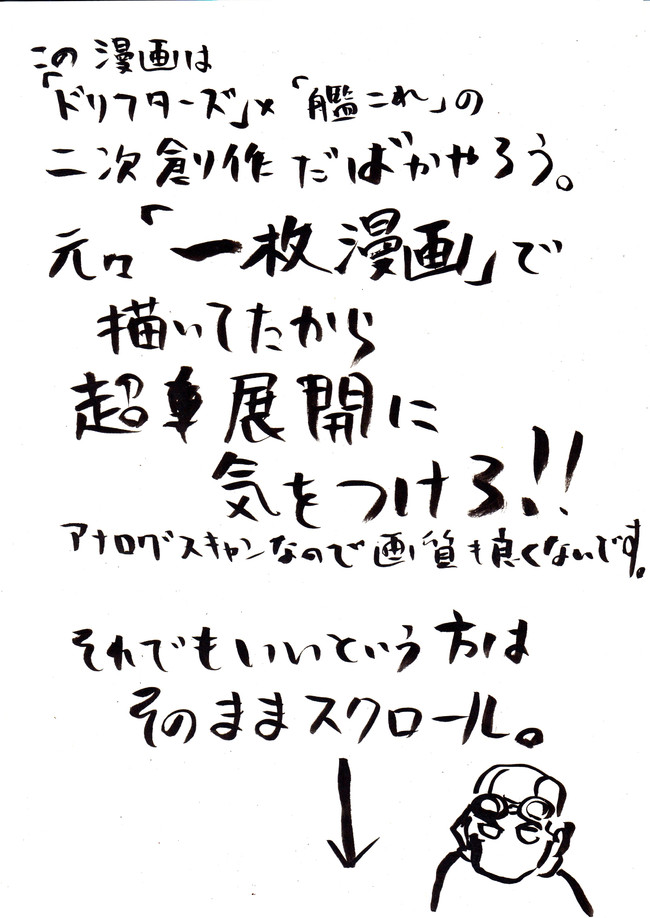 この漫画は
「ドリフターズ」×「艦これ」の
二次創作だばかやろう。
元々「一枚漫画」で
描いてたから
超車展開に
気をつけろ!!
アナログスキャンなので画質も良くないです。
それでもいいという方は
そのままスクロール。